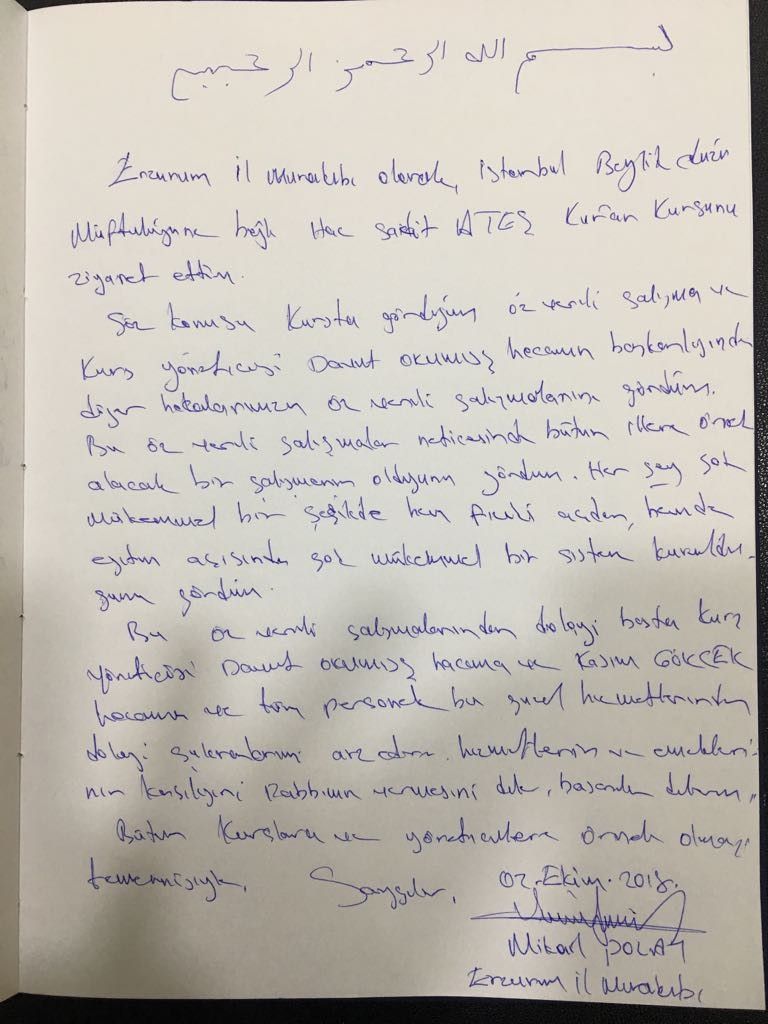 بسم الله الرحمن الرحيم
Erzurum il Murakıbı olarak, istanbul Beylik düzü
Müftülüğüne bağlı Hac Sait ATEŞ Kur'an Kursunu
ziyaret ettim.
Söz konusu Kursta gördüğüm öz verili çalışma ve
Kurs yöneticisi Davut okumuş hocanın başkanlığında
diğer hocalarımızın öz verili çalışmalarını gördüm.
Bu öz verili çalışmalar neticesinde bütün illere örnek
alacak bir çalışmanın olduğunu gördüm. Her şey çok
mükemmel bir şeğilde hem fiziki açıdan, hemde
eğitim açısından çok mükemmel bir sistem kuruldu-
ğunu gördüm.
Bu öz verili çalışmalarından dolayi başta kurs
yöneticisi Davut okumuş hocama ve Kasım GÖKÇEK
hocama ve tüm personele bu güzel hizmetlerinden
dolayi şükranlarımı arz ederim. hizmetlerin ve emekleri-
nin karşılığını Rabbimin vermesini diler, başarılar dilerim,,
Bütün Kurslara ve yöneticilere örnek olmayi
temennisiyle, Saygılar, 02.Ekim.2018.
Mikail POLAT
Erzurum il Murakıbı